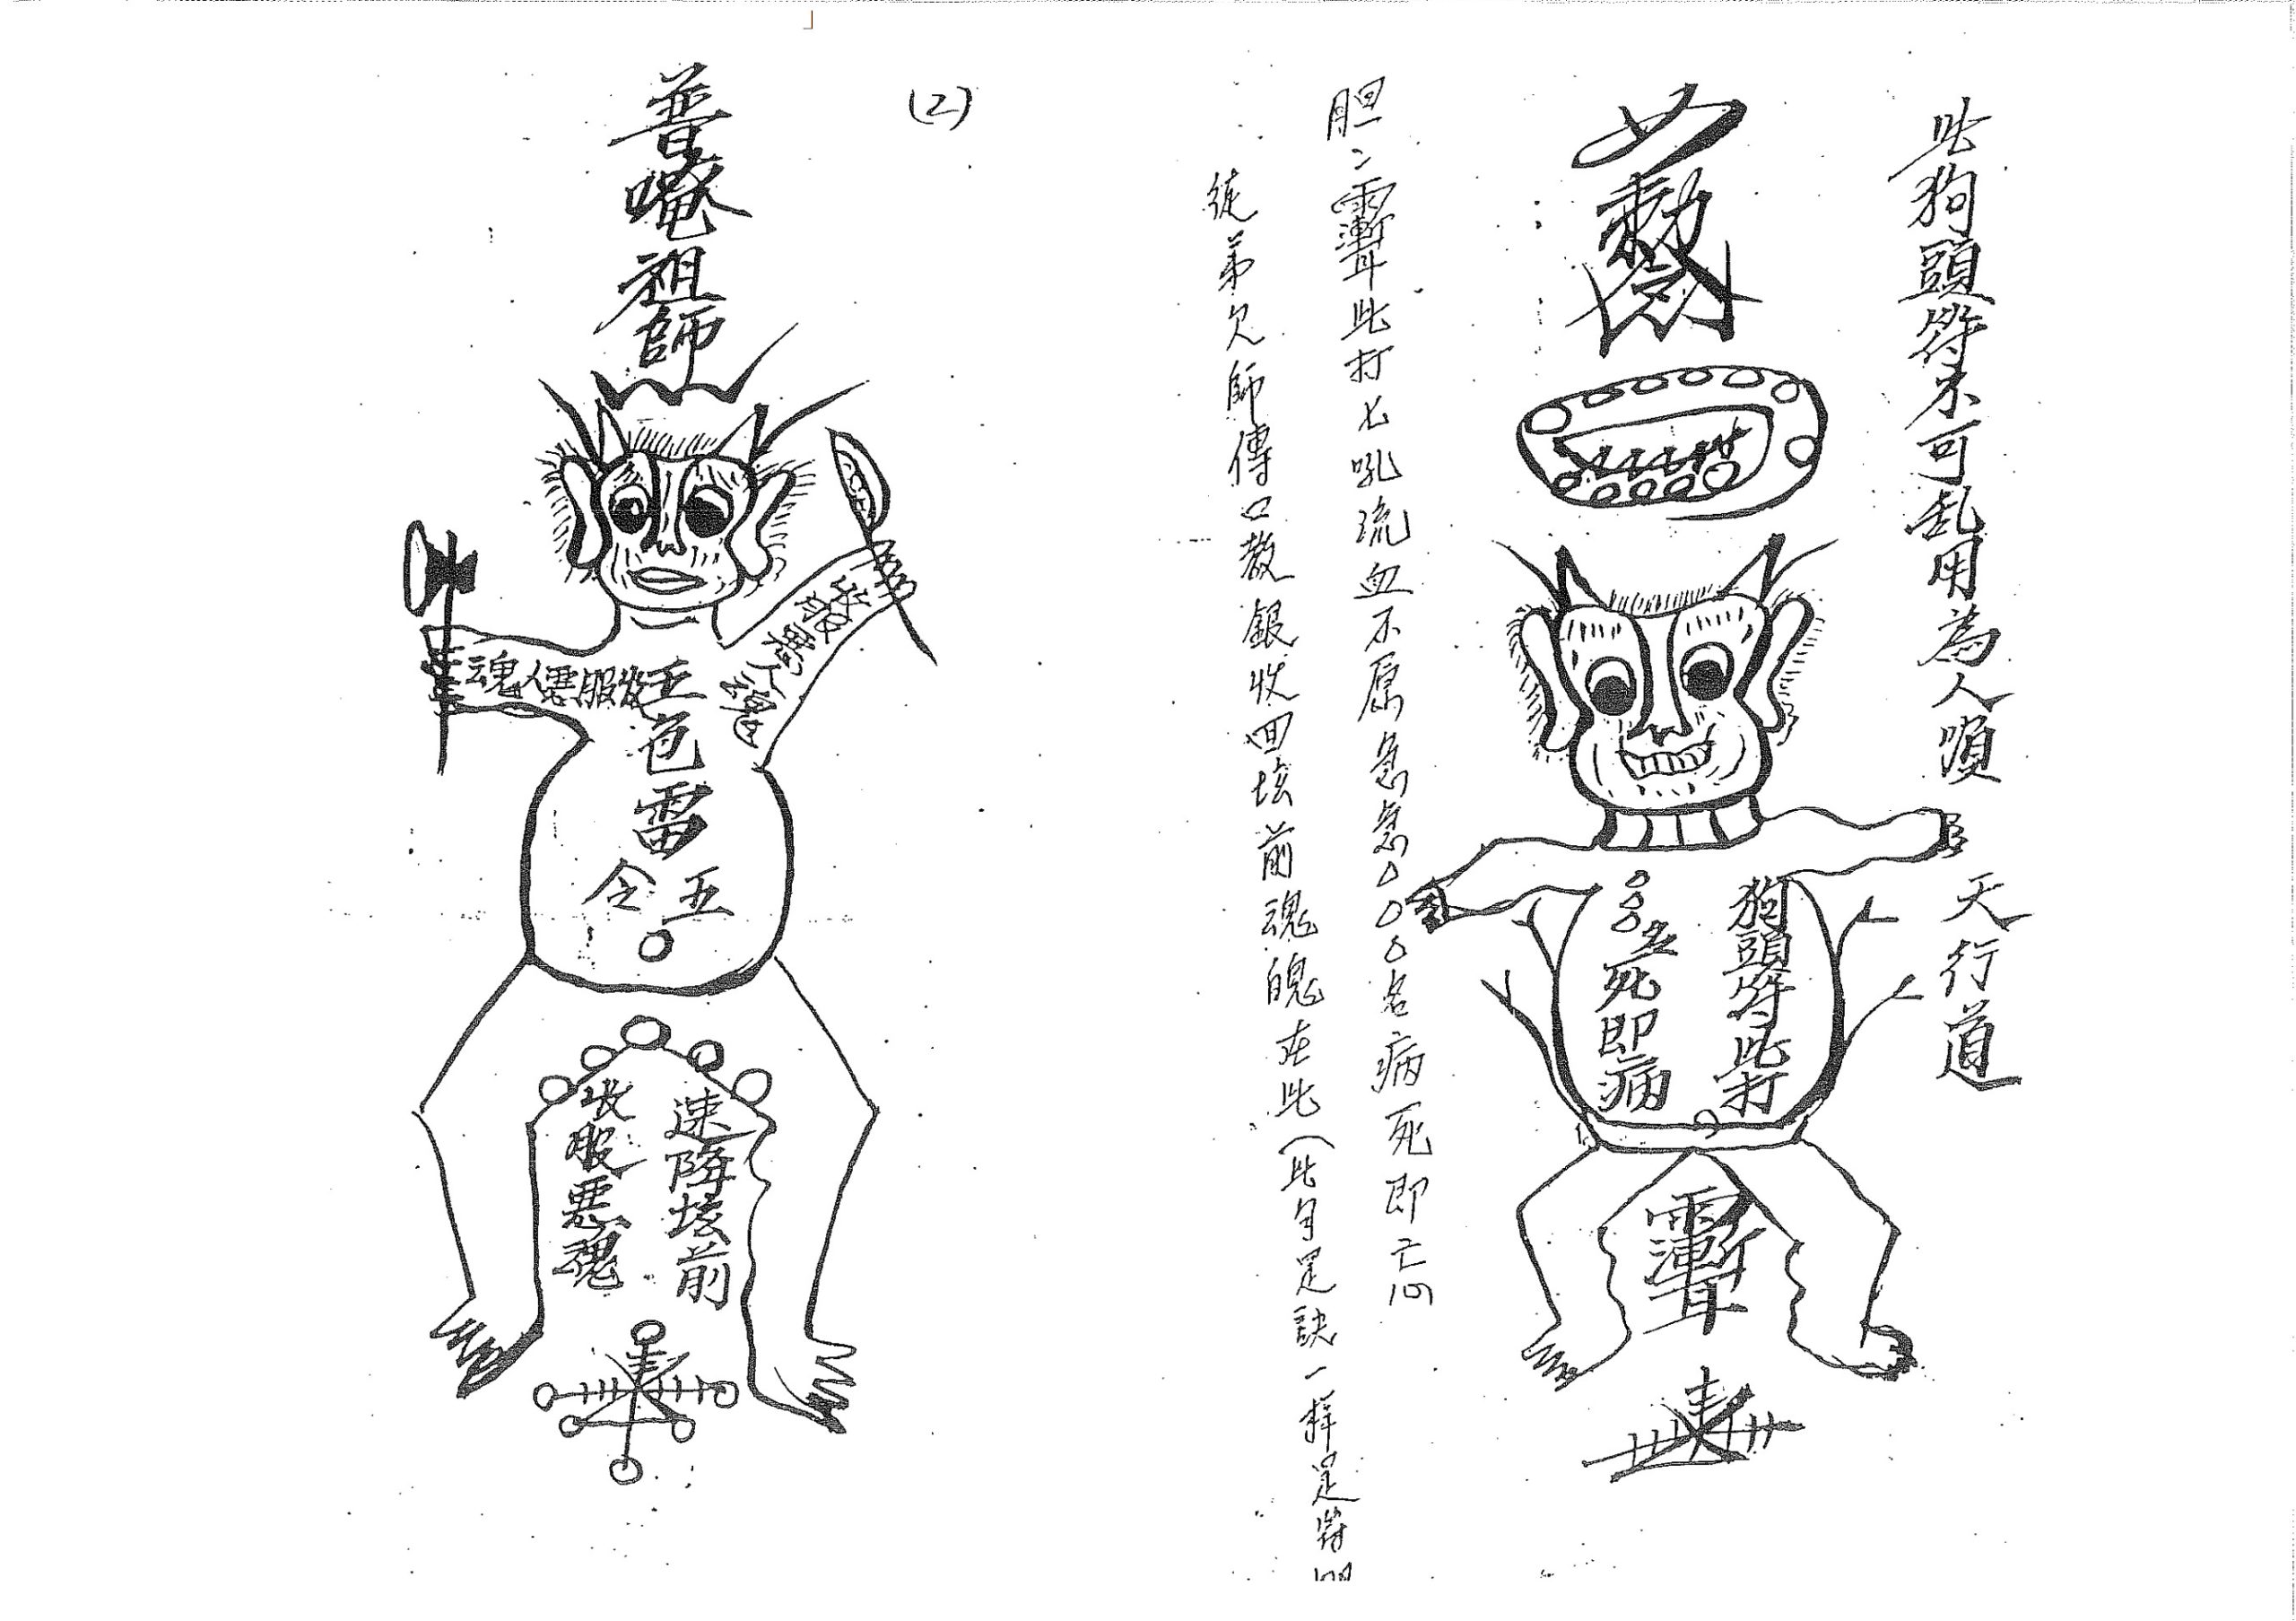 此狗頭符不可乱用為人順 天行道
狗頭符此打
名死即病
胆
此打七吼流血不愿急急
名病死即亡
徒弟欠師傳口教銀收回坛前魂魄在此（此句是訣一样是符
(2)
普唵祖師
收服惡人魂
收服惡人魂
五色雷
五
令
速降坛前
收服惡魂